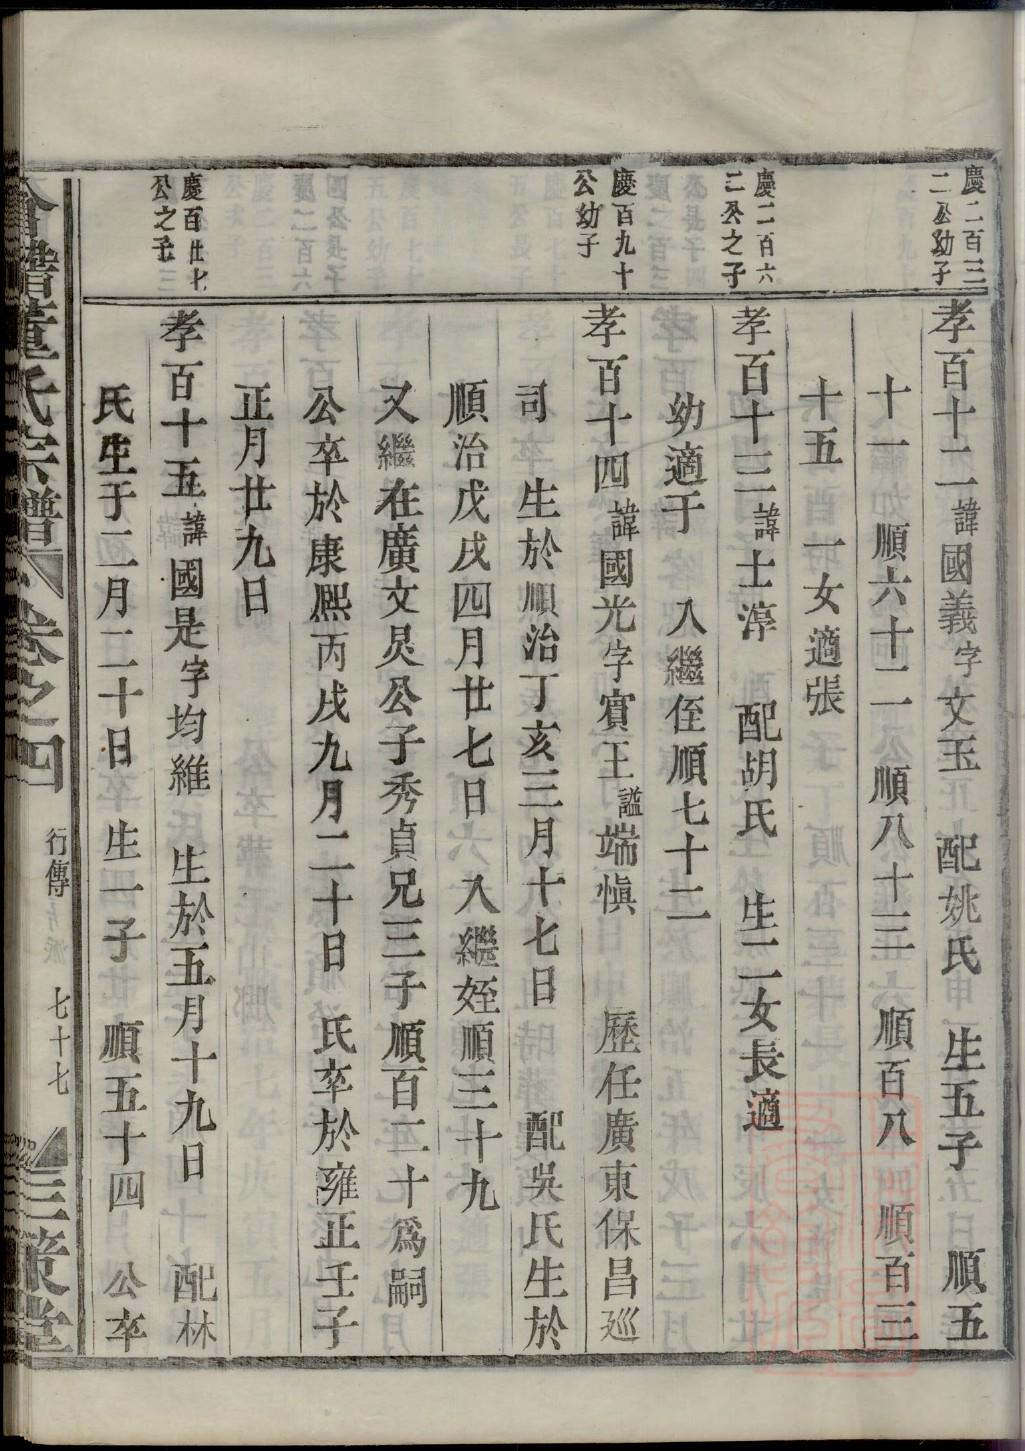 慶二百三
二公幼子
孝百十二諱國義字文玉　配姚氏　生五子　順五
十一　順六十二　順八十三　順百八　順百三
十五　一女適張
慶二百六
二公之子
孝百十三諱士淳　配胡氏　生二女長適
幼適于　入繼侄順七十二
慶百九十
公幼子
孝百十四諱國光字賓王謚端愼　歷任廣東保昌巡
司　生於順治丁亥三月十七日　配吳氏生於
順治戊戌四月廿七日　入繼姪順三十九
又繼在廣文炅公子秀貞兄三子順百二十爲嗣
公卒於康熙丙戌九月二十日　氏卒於雍正壬子
正月廿九日
慶百廿七
公之子
孝百十五諱國是字均維　生於五月十九日　配林
氏生于二月二十日　生一子　順五十四　公卒
合譜董氏宗譜　卷之四　行傳　七十七　三策堂